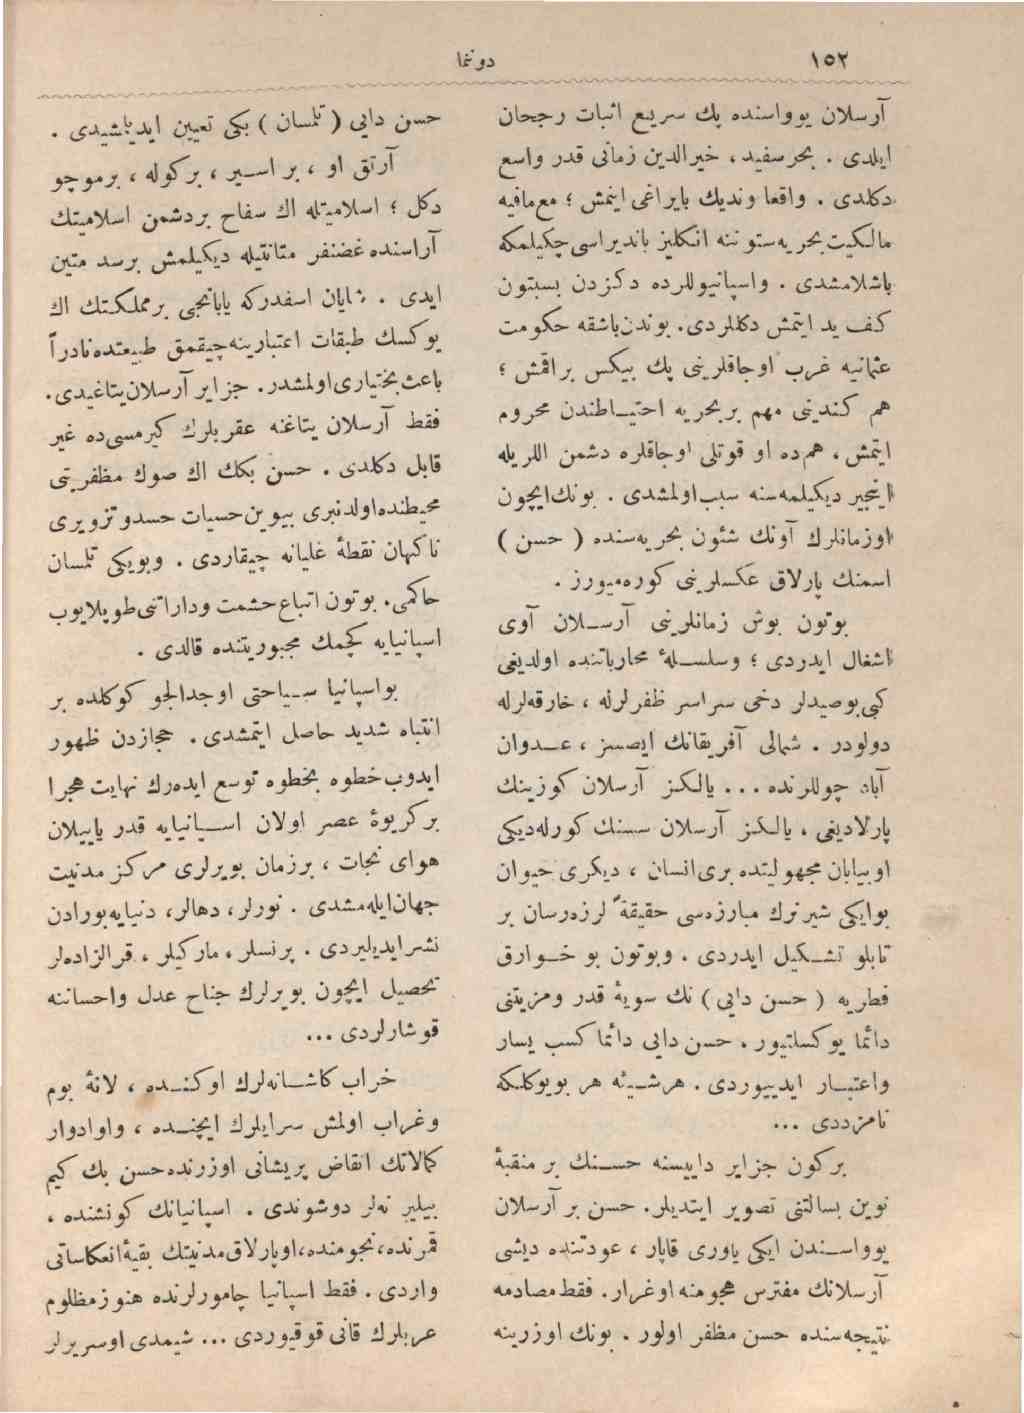 ١٥٢
دوننما
آرسلان يوواسنده پك سريع اثبات رجحان
ايلدى . بحرسفيد ، خيرالدين زمانى قدر واسع
دكلدى . واقعا ونديك بايراغى اينمش ؛ مع‌مافيه
مالكيت بحريه ستوننه انكليز بانديراسى چكيلمكه
باشلامشدى . واسپانيوللرده دكزدن بسبتون
كف يد ايتمش دكللردى . بوندن باشقه حكومت
عثمانيه غرب اوجاقلرينى پك بيكس براقمش ؛
هم كندينى مهم بر بحريه احتيــاطندن محروم
ايتمش ، هم‌ده او قوتلى اوجاقلره دشمن اللريله
اينجير ديكيلمه‌سنه سبب اولمشدى . بونك ايچون
اوزمانلرك آونك شئون بحريه‌سنده ( حسن )
اسمنك پارلاق عكسلرينى كوره‌ميورز .
بوتون بوش زمانلرينى آرســلان آوى
اشغال ايدردى ؛ وسلســلهٔ محارباتنده اولديغى
كبى بوصيدلر دخى سراسر ظفرلرله ، خارقه‌لرله
دولودر . شمالى آفريقانك ايصسز ، عــدوان
آباد چوللرنده ... يالكز آرسلان كوزينك
پارلاديغى ، يالكز آرسلان سسنك كورله‌ديكى
اوبيابان مجهوليتده برى انسان ، ديكرى حيوان
بوايكى شيرنرك مبارزه‌سى حقيقةً لرزه‌رسان بر
تابلو تشــكيل ايدردى . وبوتون بو خــوارق
فطريه ( حسن دايى ) نك سويهٔ قدر ومزيتنى
دائما يوكسلتيور . حسن دايى دائما كسب يسار
واعتبــار ايدييوردى . هرشــيئه هر بويوكلكه
نامزددى ...
بركون جزاير داييسنه حســنك بر منقبهٔ
نوين بسالتنى تصوير ايتديلر . حسن بر آرسلان
يوواســندن ايكى ياورى قاپار ، عودتنده ديشى
آرسلانك مفترس هجومنه اوغرار . فقط مصادمه
نتيجه‌سنده حسن مظفر اولور . بونك اوزرينه
حسن دايى ( تلمسان ) بكى تعيين ايديلمشيدى .
آرتق او ، بر اســير ، بر كوله ، بر موچو
دكل ؛ اسلاميتله اك سفاح بردشمن اسلاميتك
آراسنده غضنفر متانتيله ديكيلمش برسد متين
ايدى . شايان اسفدركه يابانجى برمملكتك اك
يوكسك طبقات اعتبارينه چيقمق طبيعتده نادراً
باعث بختيارى اولمشدر . جزاير آرسلان يتاغيدى .
فقط آرسلان يتاغنه عقربلرك كيرمسى‌ده غير
قابل دكلدى . حسن بكك اك صوك مظفريتى
محيطنده اولدنبرى بيوين حسيات حسدوتزويرى
ناكهان نقطهٔ غليانه چيقاردى . وبويكى تلمسان
حاكمى ، بوتون اتباع حشمت وداراتنى طوپلايوب
اسپانيايه كچمك مجبوريتنده قالدى .
بواسپانيا ســياحتى اوجدالجو كوكلده بر
انتباه شديد حاصل ايتمشدى . حجازدن ظهور
ايدوب خطوه بخطوه توسع ايده‌رك نهايت هجرا
بركريوهٔ عصر اولان اســپانيايه قدر ياييلان
هواى نجات ، برزمان بويرلرى مركز مدنيت
جهان ايله‌مشدى . نورلر ، دهالر ، دنيايه بورادن
نشر ايديليردى . پرنسلر ، ماركيلر ، قرالزاده‌لر
تحصيل ايچون بويرلرك جناح عدل واحساننه
قوشارلردى ...
خراب كاشــانه‌لرك اوكنــده ، لانهٔ بوم
وغراب اولمش سرايلرك ايچنــده ، واوادوار
كمالاتك انقاض پريشانى اوزرنده حسن بك كيم
بيلير نه‌لر دوشوندى . اسپانيانك كونشنده ،
قمرنده ، نجومنده ، اوپارلاق مدنيتك بقيهٔ انعكاساتى
واردى . فقط اسپانيا چامورلرنده هنوز مظلوم
عربلرك قانى قوقيوردى ... شيمدى اوسريرلر